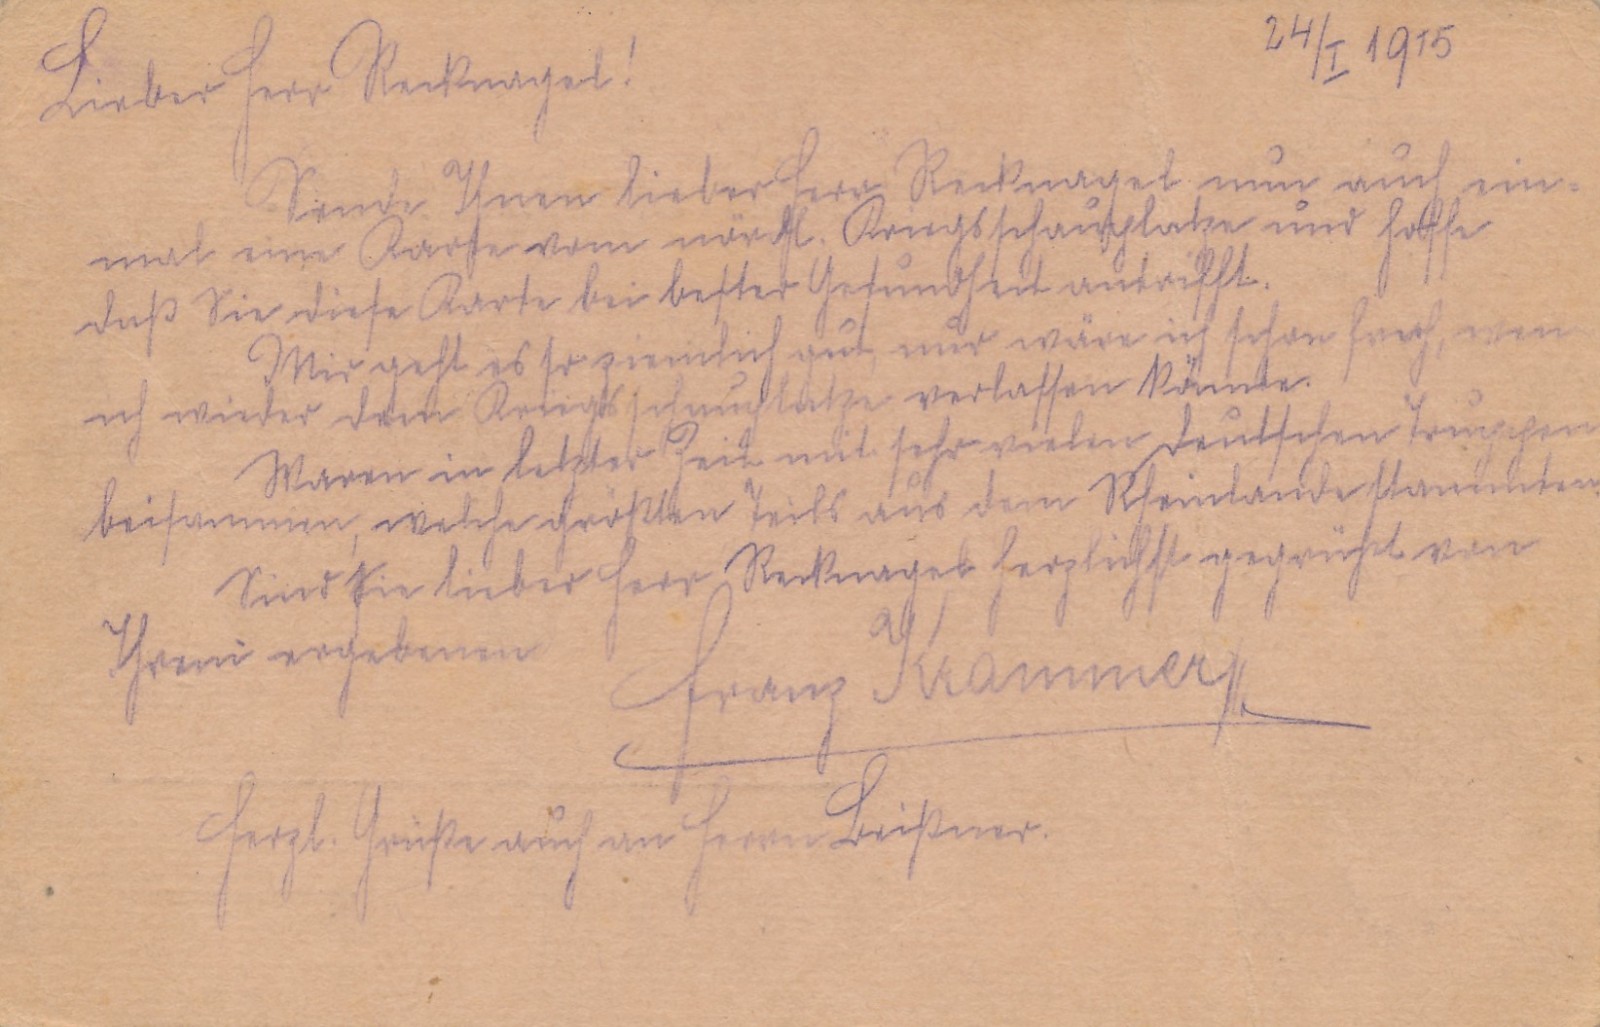 24/I 1915
Lieber Herr Recknagel!
Sende Ihnen lieber Herr Recknagel nun auch ein-
mal eine Karte vom nördl. Kriegsschauplatze und hoffe
daß Sie diese Karte bei bester Gesundheit antrifft.
Mir geht es so ziemlich gut, nur wäre ich schon froh, wen
ich wieder den Kriegsschauplatze verlassen könnte.
Waren in letzter Zeit mit sehr vielen deutschen Truppen
beisammen, welche größten Teils aus dem Rheinlande stammten.
Sind Sie lieber Herr Recknagel herzlichst gegrüßt von
Ihrem ergebenen
Franz Krammer
Herzl. Grüße auch an Herrn Beißner.